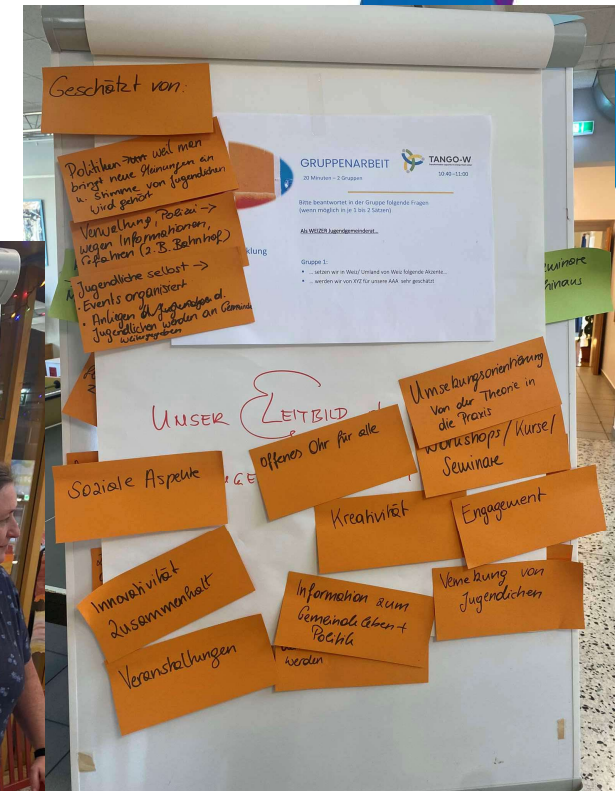 Geschätzt von:
Politiker weil man
bringt neue Meinungen an
u. Stimme von Jugendlichen
wird gehört
Verwaltung, Polizei →
wegen Informationen,
Gefahren (z.B. Bahnhof)
Jugendliche selbst →
· Events organisiert
· Anliegen d.
Jugendlichen werden an Gemeinde
weitergegeben
GRUPPENARBEIT
20 Minuten – 2 Gruppen
TANGO-W
10:40–11:00
Bitte beantwortet in der Gruppe folgende Fragen
(wenn möglich in je 1 bis 2 Sätzen)
Als WEIZER Jugendgemeinderat…
Gruppe 1:
• … setzen wir in Weiz/ Umland von Weiz folgende Akzente…
• … werden wir von XYZ für unsere AAA sehr geschätzt
klung
minare
hinaus
UNSER LEITBILD
Umsetzungsorientierung
Von der Theorie in
die Praxis
Workshops / Kurse /
Seminare
Offenes Ohr für alle
Soziale Aspekte
Kreativität
Engagement
Innovativität
Zusammenhalt
Information zum
Gemeindeleben +
Politik
werden
Vernetzung von
Jugendlichen
Veranstaltungen